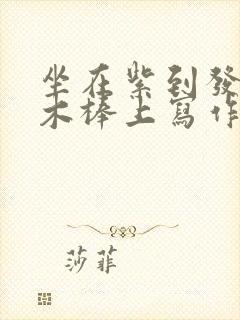 坐在紫到發
木棒上寫作
莎菲